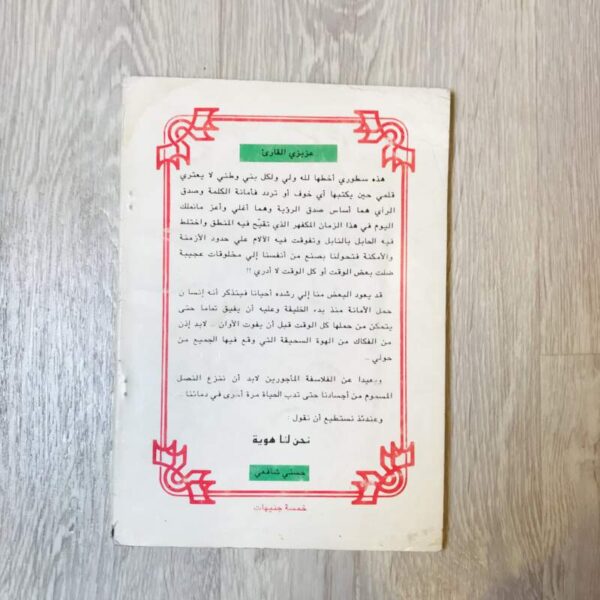 عزيزي القارئ
هذه سطوري أخطها لله ولي ولكل بني وطني لا يعتري
قلمي حين يكتبها أي خوف أو تردد فأمانة الكلمة وصدق
الرأي هما أساس صدق الرؤية وهما أغلي وأعز مانملك
اليوم في هذا الزمان المكفهر الذي تقيّح فيه المنطق واختلط
فيه الحابل بالنابل وتفوقت فيه الآلام علي حدود الأزمنة
والأمكنة فتحولنا بصنع من أنفسنا إلي مخلوقات عجيبة
ضلت بعض الوقت أو كل الوقت لا أدري !!
قد يعود البعض منا إلي رشده أحيانا فيتذكر أنه إنسان
حمل الأمانة منذ بدء الخليقة وعليه أن يفيق تماما حتى
يتمكن من حملها كل الوقت قبل أن يفوت الأوان .. لابد إذن
من الفكاك من الهوة السحيقة التي وقع فيها الجميع من
حولي ..
وبعيدا عن الفلاسفة المأجورين لابد أن ننزع النصل
المسموم من أجسادنا حتى تدب الحياة مرة أخرى في دمائنا ..
وعندئذ نستطيع أن نقول :
نحن لنا هوية
حسني شافعي
خمسة جنيهات